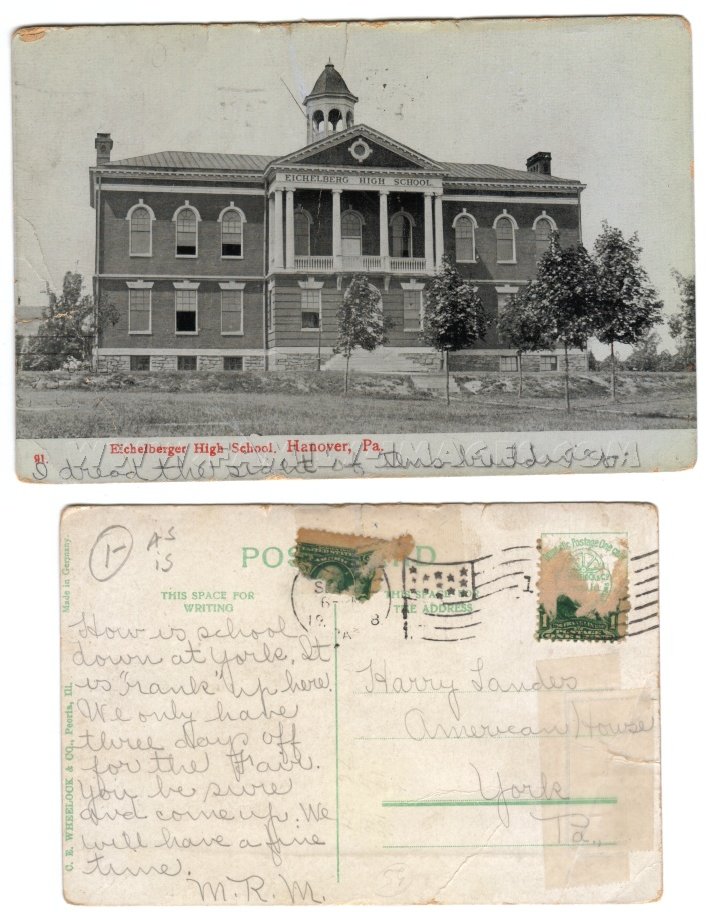 EICHELBERG HIGH SCHOOL
91. Eichelberger High School. Hanover, Pa.
I dread the sight of this building
1-
AS
IS
POST CARD
THIS SPACE FOR
WRITING
THIS SPACE FOR
THE ADDRESS
Made in Germany.
C. E. WHEELOCK & CO., Peoria, Ill.
Domestic Postage One cent
1 1
How is school
down at York. It
is "rank" up here.
We only have
three days off
for the Fair.
You be sure
and come up. We
will have a fine
time.
M.R.M.
Harry Landes
American House
York
Pa.